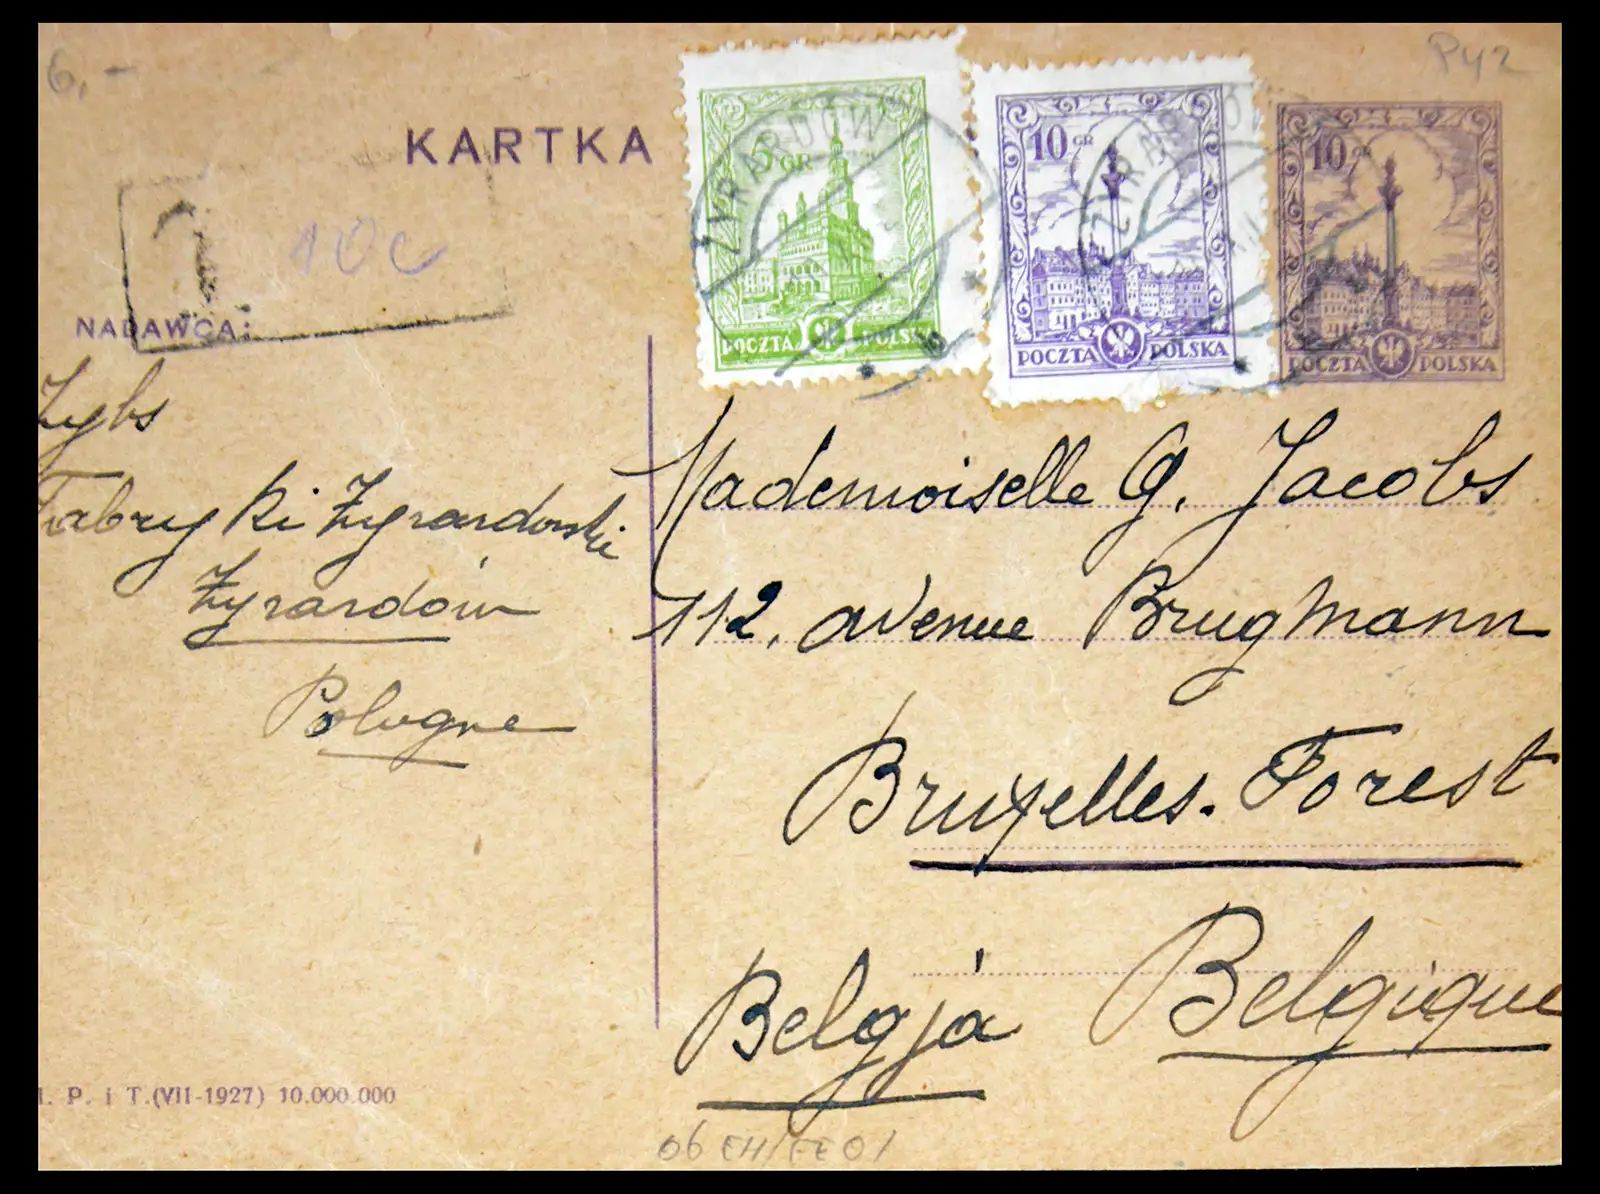 6,-
P42
KARTKA
5 GR
POCZTA POLSKA
ŻYRARDÓW
10 GR
POCZTA POLSKA
10 GR
POCZTA POLSKA
T
10c
NADAWCA:
Zybs
Fabryki Żyrardowski
Żyrardów
Pologne
Mademoiselle G. Jacobs
112, avenue Brugmann
Bruxelles. Forest
Belgja Belgique
P. i T. (VII-1927) 10.000.000